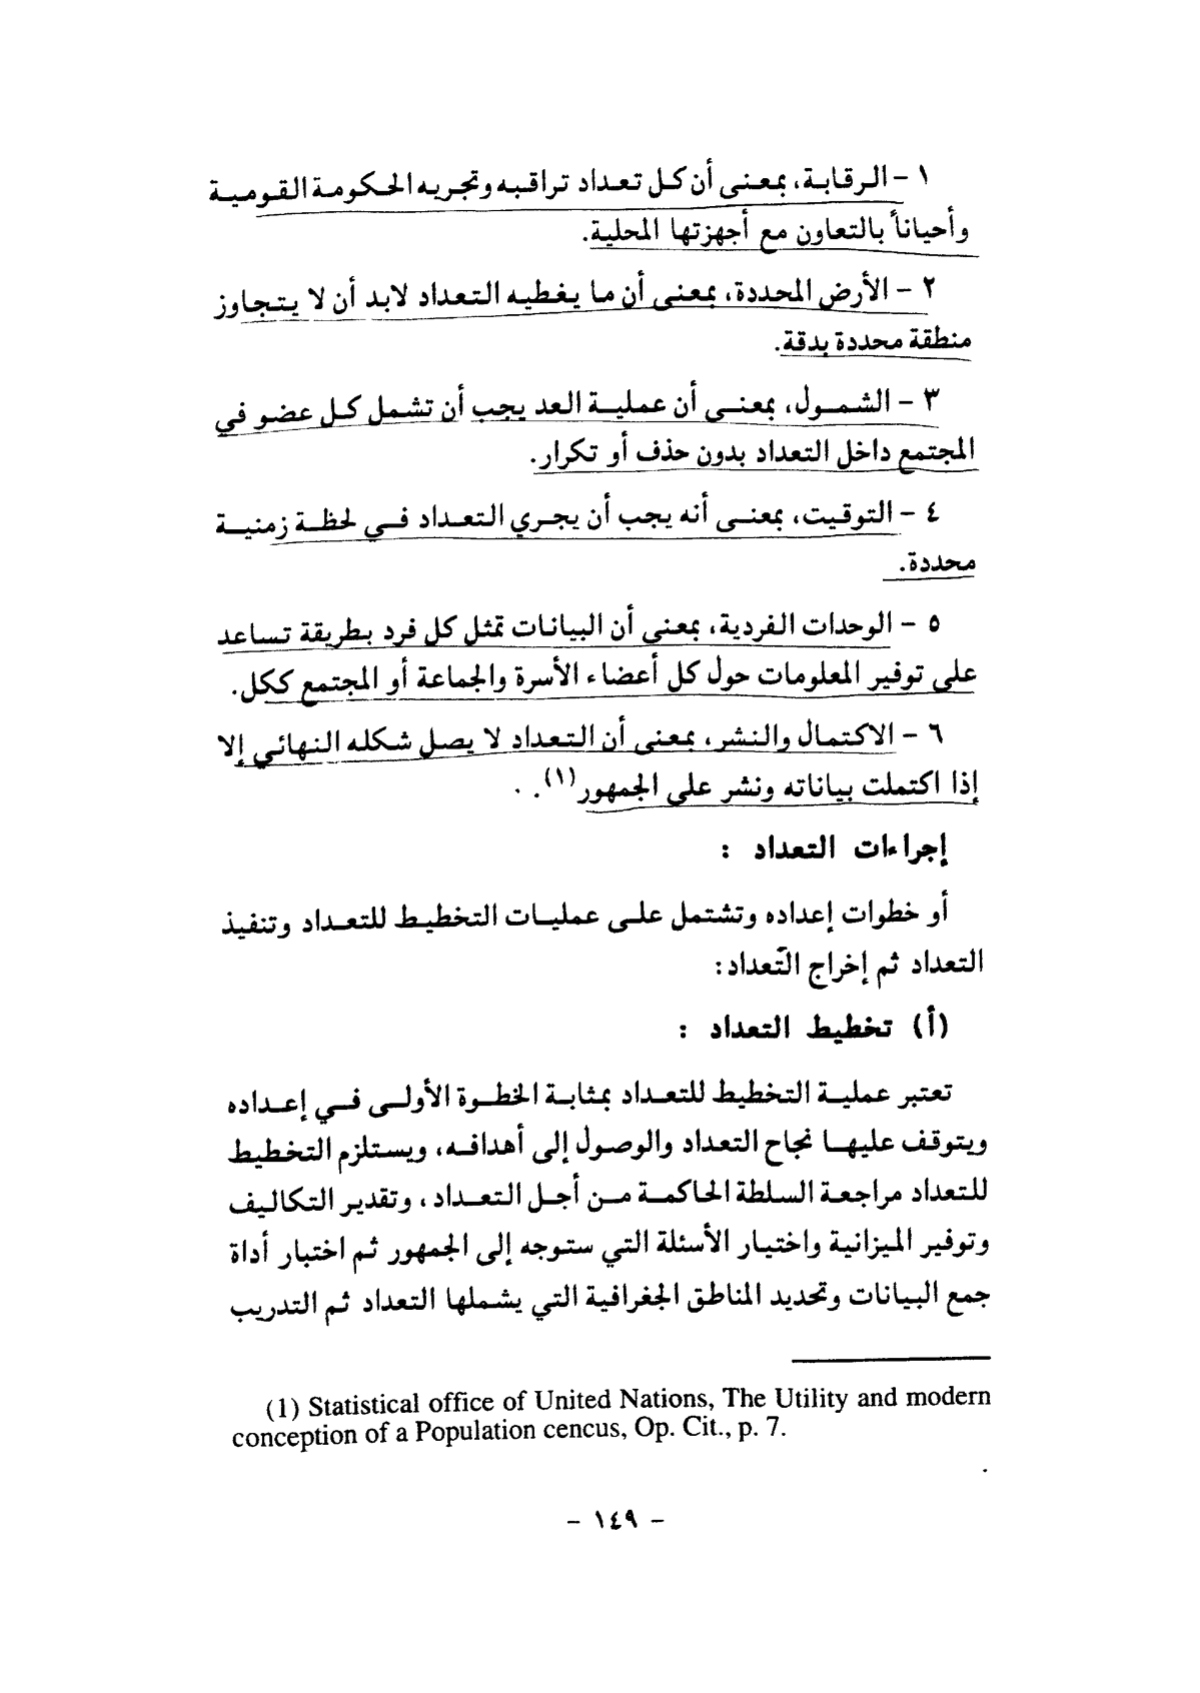 ١ - الرقابة، بمعنى أن كل تعداد تراقبه وتجريه الحكومة القومية
وأحياناً بالتعاون مع أجهزتها المحلية.
٢ - الأرض المحددة، بمعنى أن ما يغطيه التعداد لابد أن لا يتجاوز
منطقة محددة بدقة.
٣ - الشمول، بمعنى أن عملية العد يجب أن تشمل كل عضو في
المجتمع داخل التعداد بدون حذف أو تكرار.
٤ - التوقيت، بمعنى أنه يجب أن يجري التعداد في لحظة زمنية
محددة.
٥ - الوحدات الفردية، بمعنى أن البيانات تمثل كل فرد بطريقة تساعد
على توفير المعلومات حول كل أعضاء الأسرة والجماعة أو المجتمع ككل.
٦ - الاكتمال والنشر، بمعنى أن التعداد لا يصل شكله النهائي إلا
إذا اكتملت بياناته ونشر على الجمهور(١).
إجراءات التعداد :
أو خطوات إعداده وتشتمل على عمليات التخطيط للتعداد وتنفيذ
التعداد ثم إخراج التعداد:
(أ) تخطيط التعداد :
تعتبر عملية التخطيط للتعداد بمثابة الخطوة الأولى في إعداده
ويتوقف عليها نجاح التعداد والوصول إلى أهدافه، ويستلزم التخطيط
للتعداد مراجعة السلطة الحاكمة من أجل التعداد، وتقدير التكاليف
وتوفير الميزانية واختيار الأسئلة التي ستوجه إلى الجمهور ثم اختبار أداة
جمع البيانات وتحديد المناطق الجغرافية التي يشملها التعداد ثم التدريب
(1) Statistical office of United Nations, The Utility and modern
conception of a Population cencus, Op. Cit., p. 7.
- ١٤٩ -